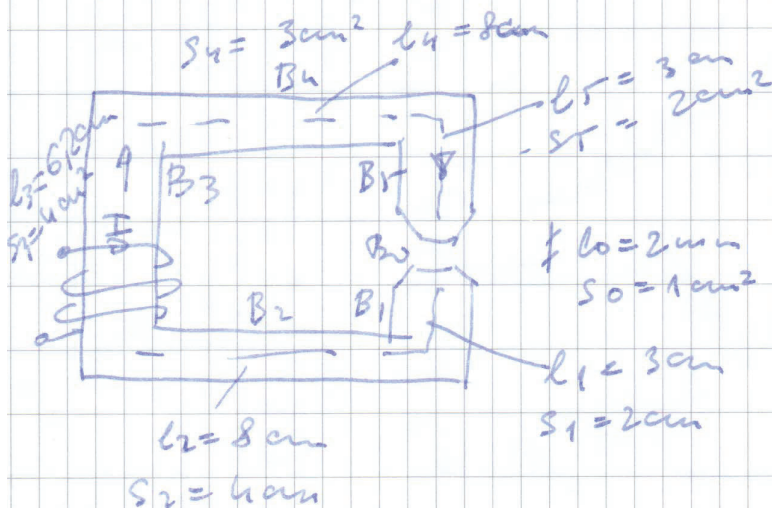 S4 = 3cm² l4 = 8cm
B4
l5 = 3cm
S5 = 2cm²
l3 = 6,2cm
S3 = 4cm²
B3
B5
I
B0
l0 = 2mm
S0 = 1cm²
B2
B1
l1 = 3cm
S1 = 2cm
l2 = 8cm
S2 = 4cm